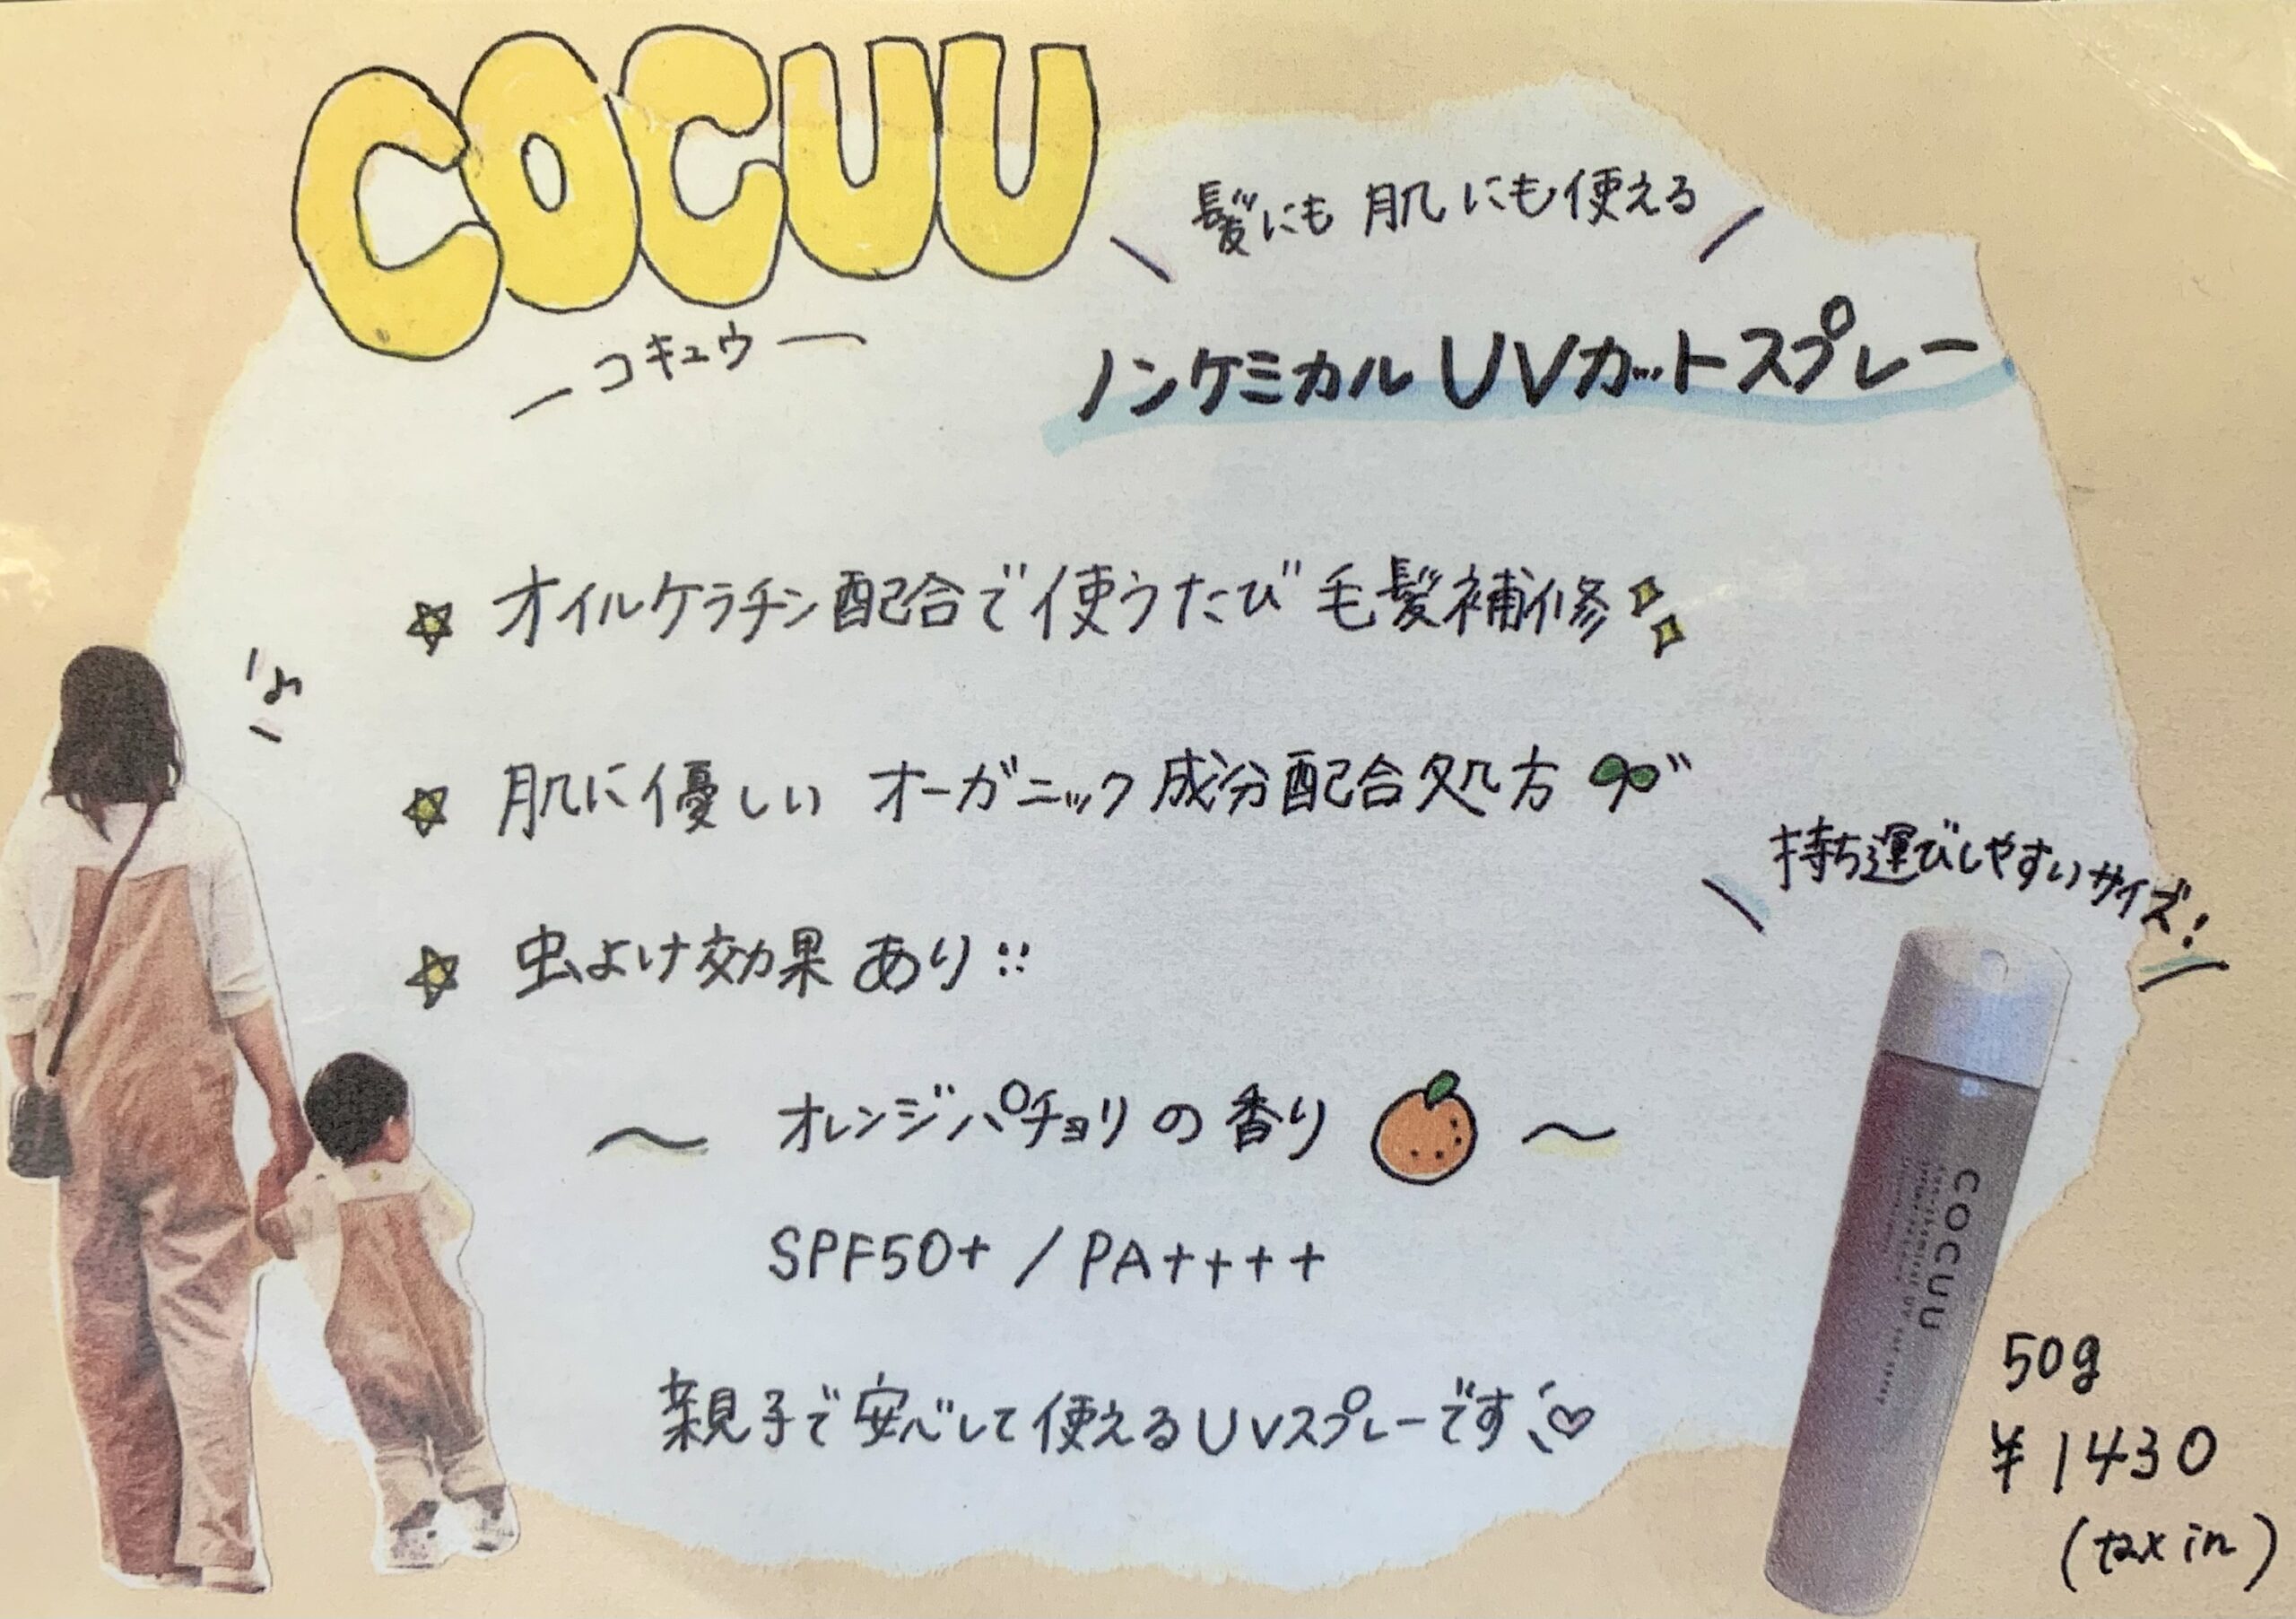 COCUU
ーコキュウー
髪にも肌にも使える
ノンケミカルUVカットスプレー
オイルケラチン配合で使うたび毛髪補修
肌に優しい オーガニック成分配合処方
虫よけ効果あり!!
〜 オレンジパチョリの香り 〜
SPF50+ / PA++++
親子で安心して使えるUVスプレーです
持ち運びしやすいサイズ!
COCUU
50g
¥1430
(tax in)